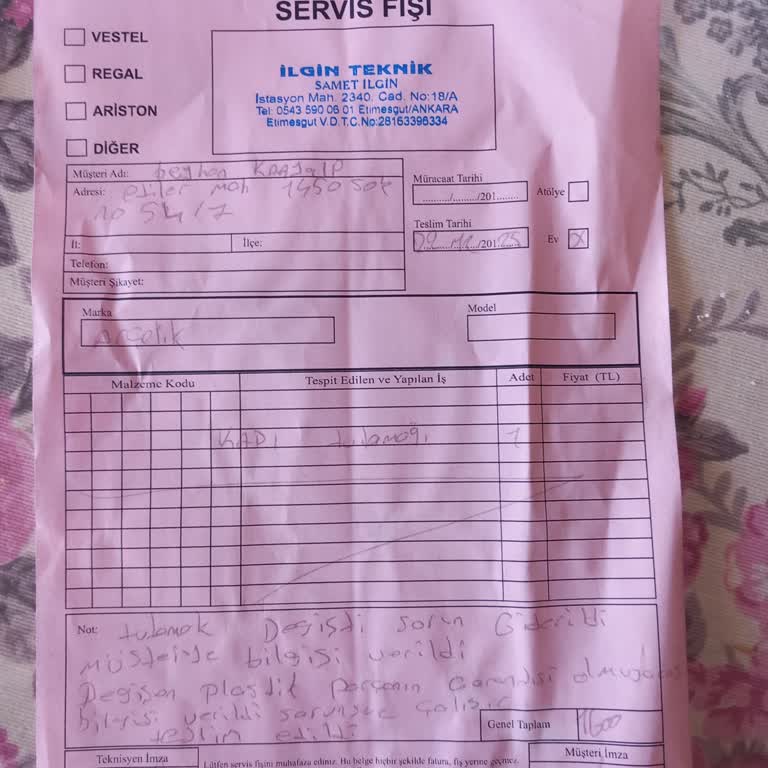 SERVİS FİŞİ
VESTEL
REGAL
ARISTON
DİĞER
İLGİN TEKNİK
SAMET ILGIN
İstasyon Mah. 2340. Cad. No:18/A
Tel: 0543 590 06 01 Etimesgut/ANKARA
Etimesgut V.D.T.C.No:28163396334
Müşteri Adı: beyhan
Adresi: etiler mah 1450 sok
no 54/7
İl: İlçe:
Telefon:
Müşteri Şikayet:
Müracaat Tarihi
........./........./201.........
Atölye
Teslim Tarihi
/201 25
Ev X
Marka
Arçelik
Model
Malzeme Kodu Tespit Edilen ve Yapılan İş Adet Fiyat (TL)
KAPI tutamağı 1
Not: tutamak Değişti sorun Giderildi
müşteriye bilgisi verildi
Değişen plastik parçanın Garandisi olmuyacağı
bilgisi verildi sorunsuz çalışır
teslim edildi
Genel Toplam 1600
Teknisyen İmza
Lütfen servis fişini muhafaza ediniz. Bu belge hiçbir şekilde fatura, fiş yerine geçmez.
Müşteri İmza